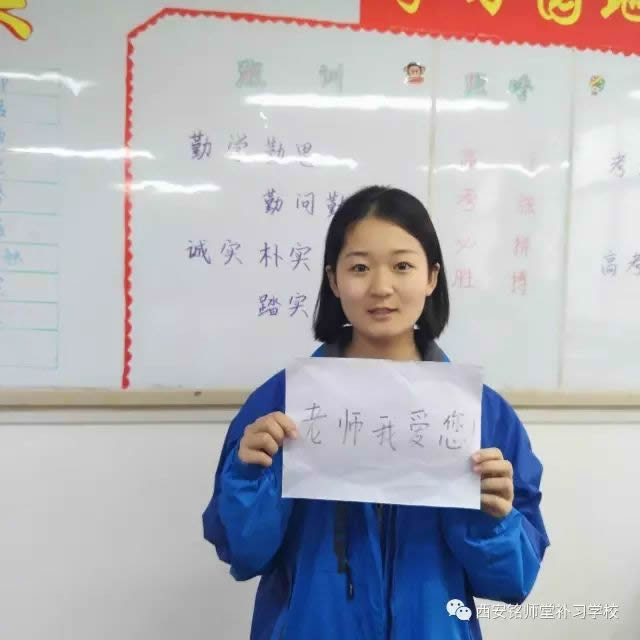 班训
勤学勤思
勤问勤
诚实 朴实
踏实
班呼
考
必
胜
强
拼
搏
考
高考
老师我爱您!
西安铭师堂补习学校